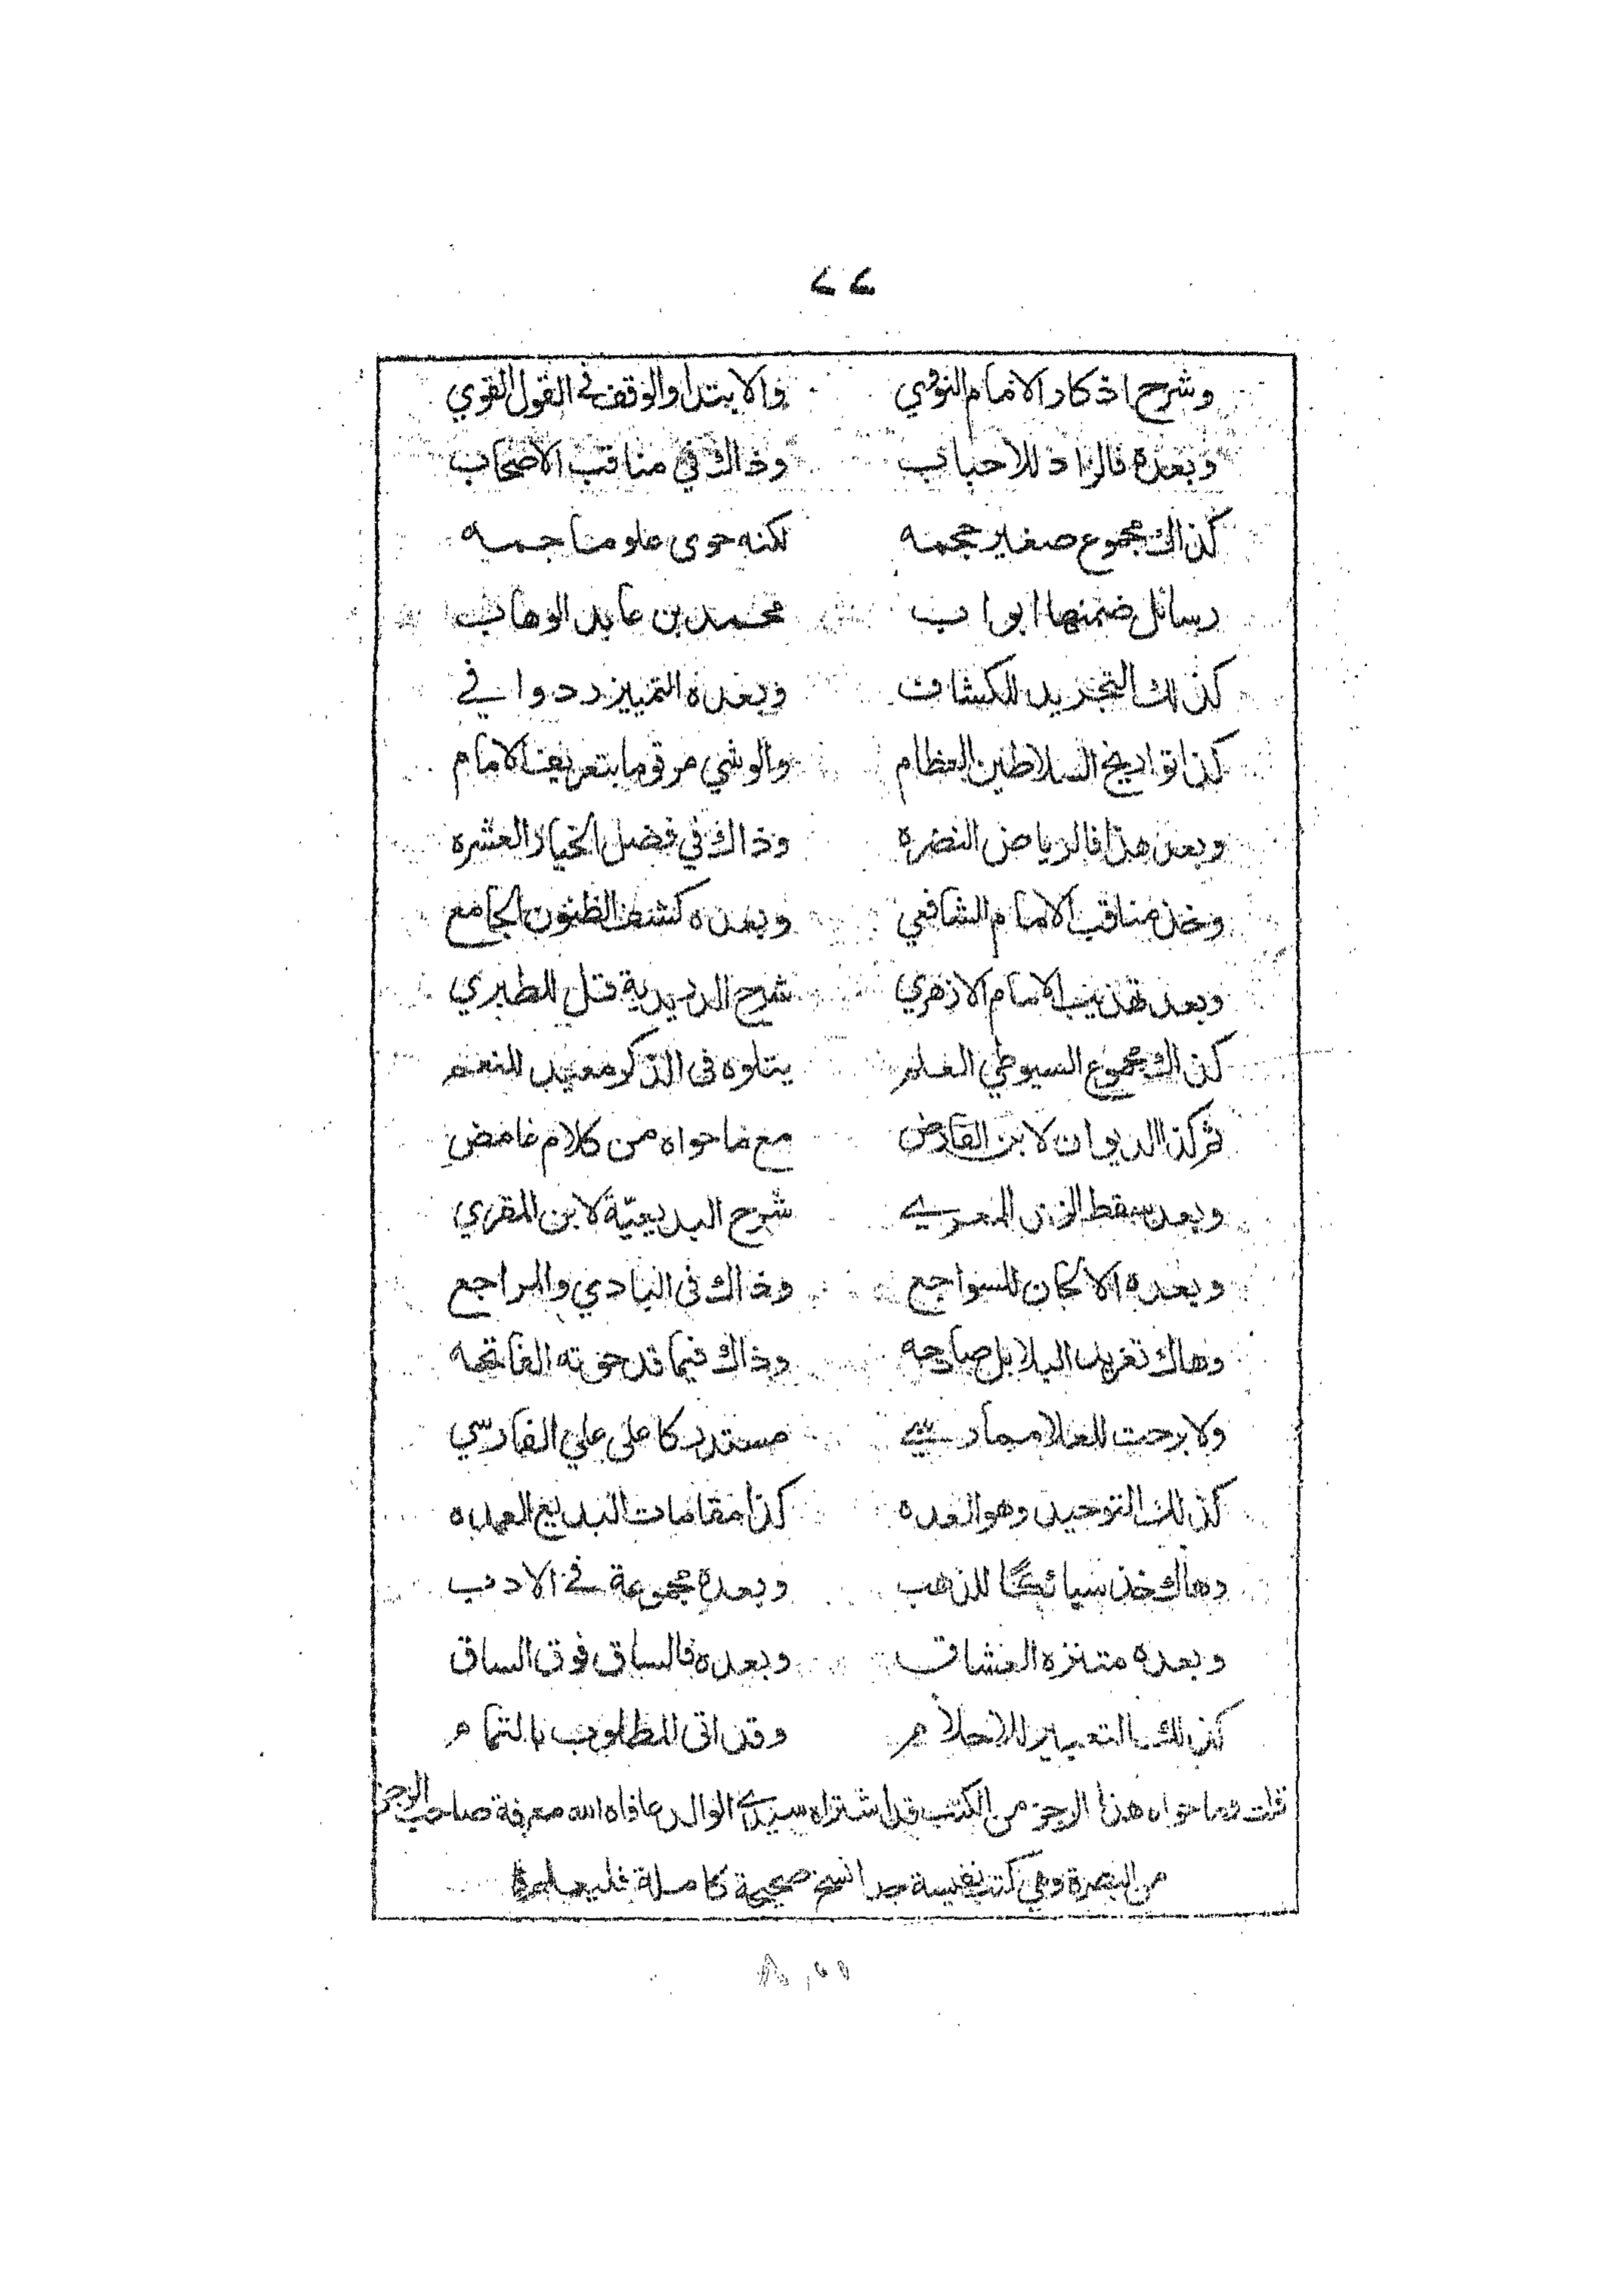 ٢٢
وشرح اذكار الامام النووي والابتدا والوقف في القول القوي
وبعده فالزاد للاحباب وذاك في مناقب الاصحاب
كذاك مجموع صغير حجمه لكنه حوى علوما جمه
رسائل ضمنها ابواب محمد بن عابد الوهاب
كذلك التجريد للكشاف وبعده التمييز ردوا في
كذا تواريخ السلاطين العظام والوشي مرقوما بتعريف الامام
وبعد هذا فالرياض النضره وذاك في فضل الخيار العشره
وخذ مناقب الامام الشافعي وبعده كشف الظنون الجامع
وبعد تهذيب الامام الازهري شرح الدريدية قل للطبري
كذاك مجموع السيوطي العلم يتلوه في الذكر معيد للنعم
ثم كذا الديوان لابن الفارض مع ما حواه من كلام غامض
وبعد سقط الزند للمعري شرح البديعيّة لابن المقري
وبعده الالحان للسواجع وذاك في البادي والمراجع
وهاك تغريد البلابل صادحه وذاك فيما قد حوته الفاتحه
ولا برحت للعلا ممارسي مستدركا على علي الفارسي
كذلك التوحيد وهو العده كذا مقامات البديع العمده
وهاك خذ سبائكًا للذهب وبعده مجموعة في الادب
وبعده متنزه العشاق وبعده فالساق فوق الساق
كذلك التعبير للاحلام وقد اتى المطلوب بالتمام
قلت وما حواه هذا الرجز من الكتب قد اشتراه سيدي الوالد عافاه الله معرفة صاحب الرجز
من البصرة وهي كتب نفيسة جدا نسخ صحيحة كاملة فليعلم